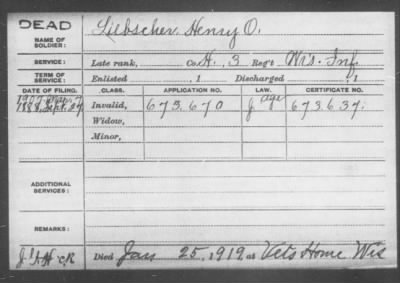 DEAD
NAME OF SOLDIER: Liebscher, Henry O.
SERVICE: Late rank, Co. H, 3 Reg't Wis. Inf.
TERM OF SERVICE: Enlisted , 1 Discharged , 1
DATE OF FILING. CLASS. APPLICATION NO. LAW. CERTIFICATE NO.
1888, Sept. 24 Invalid, 675.670 673.637.
Widow,
Minor,
ADDITIONAL SERVICES:
REMARKS:
Died Jan 25, 1919, at Vets Home Wis